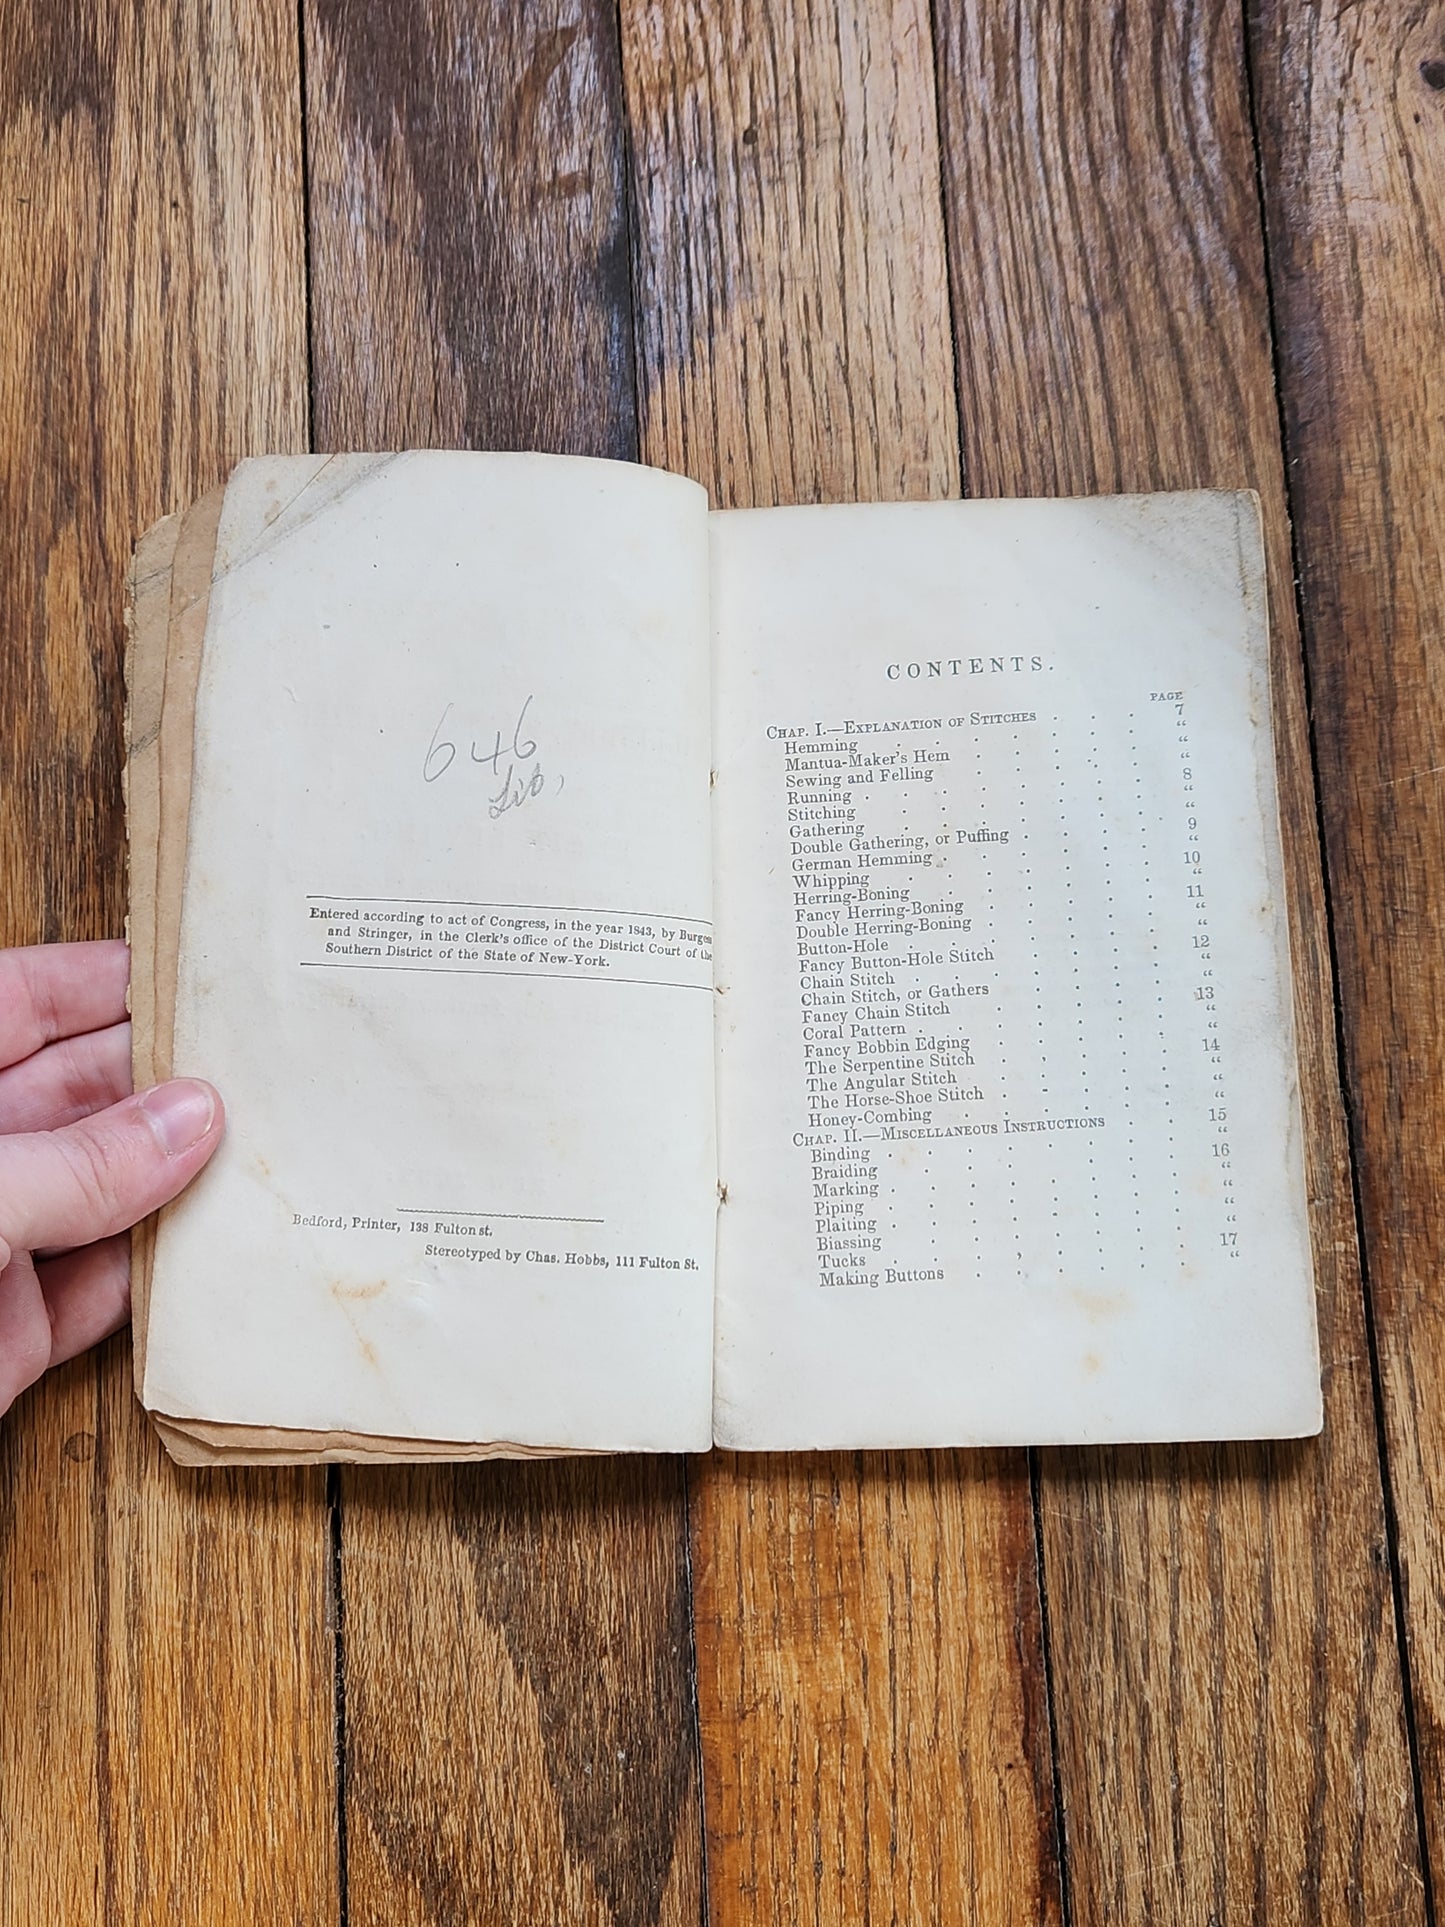 646
Lib,
Entered according to act of Congress, in the year 1843, by Burgess
and Stringer, in the Clerk's office of the District Court of the
Southern District of the State of New-York.
Bedford, Printer, 138 Fulton st.
Stereotyped by Chas. Hobbs, 111 Fulton St.
CONTENTS.
PAGE
CHAP. I.—EXPLANATION OF STITCHES . . . 7
Hemming . . . . . . . “
Mantua-Maker's Hem . . . . . “
Sewing and Felling . . . . . “
Running . . . . . . . 8
Stitching . . . . . . “
Gathering . . . . . . “
Double Gathering, or Puffing . . . . 9
German Hemming . . . . . . “
Whipping . . . . . . 10
Herring-Boning . . . . . . “
Fancy Herring-Boning . . . . . 11
Double Herring-Boning . . . . . “
Button-Hole . . . . . . “
Fancy Button-Hole Stitch . . . . 12
Chain Stitch . . . . . . “
Chain Stitch, or Gathers . . . . “
Fancy Chain Stitch . . . . . 13
Coral Pattern . . . . . . “
Fancy Bobbin Edging . . . . . “
The Serpentine Stitch . . . . . 14
The Angular Stitch . . . . . “
The Horse-Shoe Stitch . . . . . “
Honey-Combing . . . . . . “
CHAP. II.—MISCELLANEOUS INSTRUCTIONS . . . 15
Binding . . . . . . . “
Braiding . . . . . . 16
Marking . . . . . . . “
Piping . . . . . . . “
Plaiting . . . . . . . “
Biassing . . . . . . “
Tucks . . . . . . . 17
Making Buttons . . . . . . “